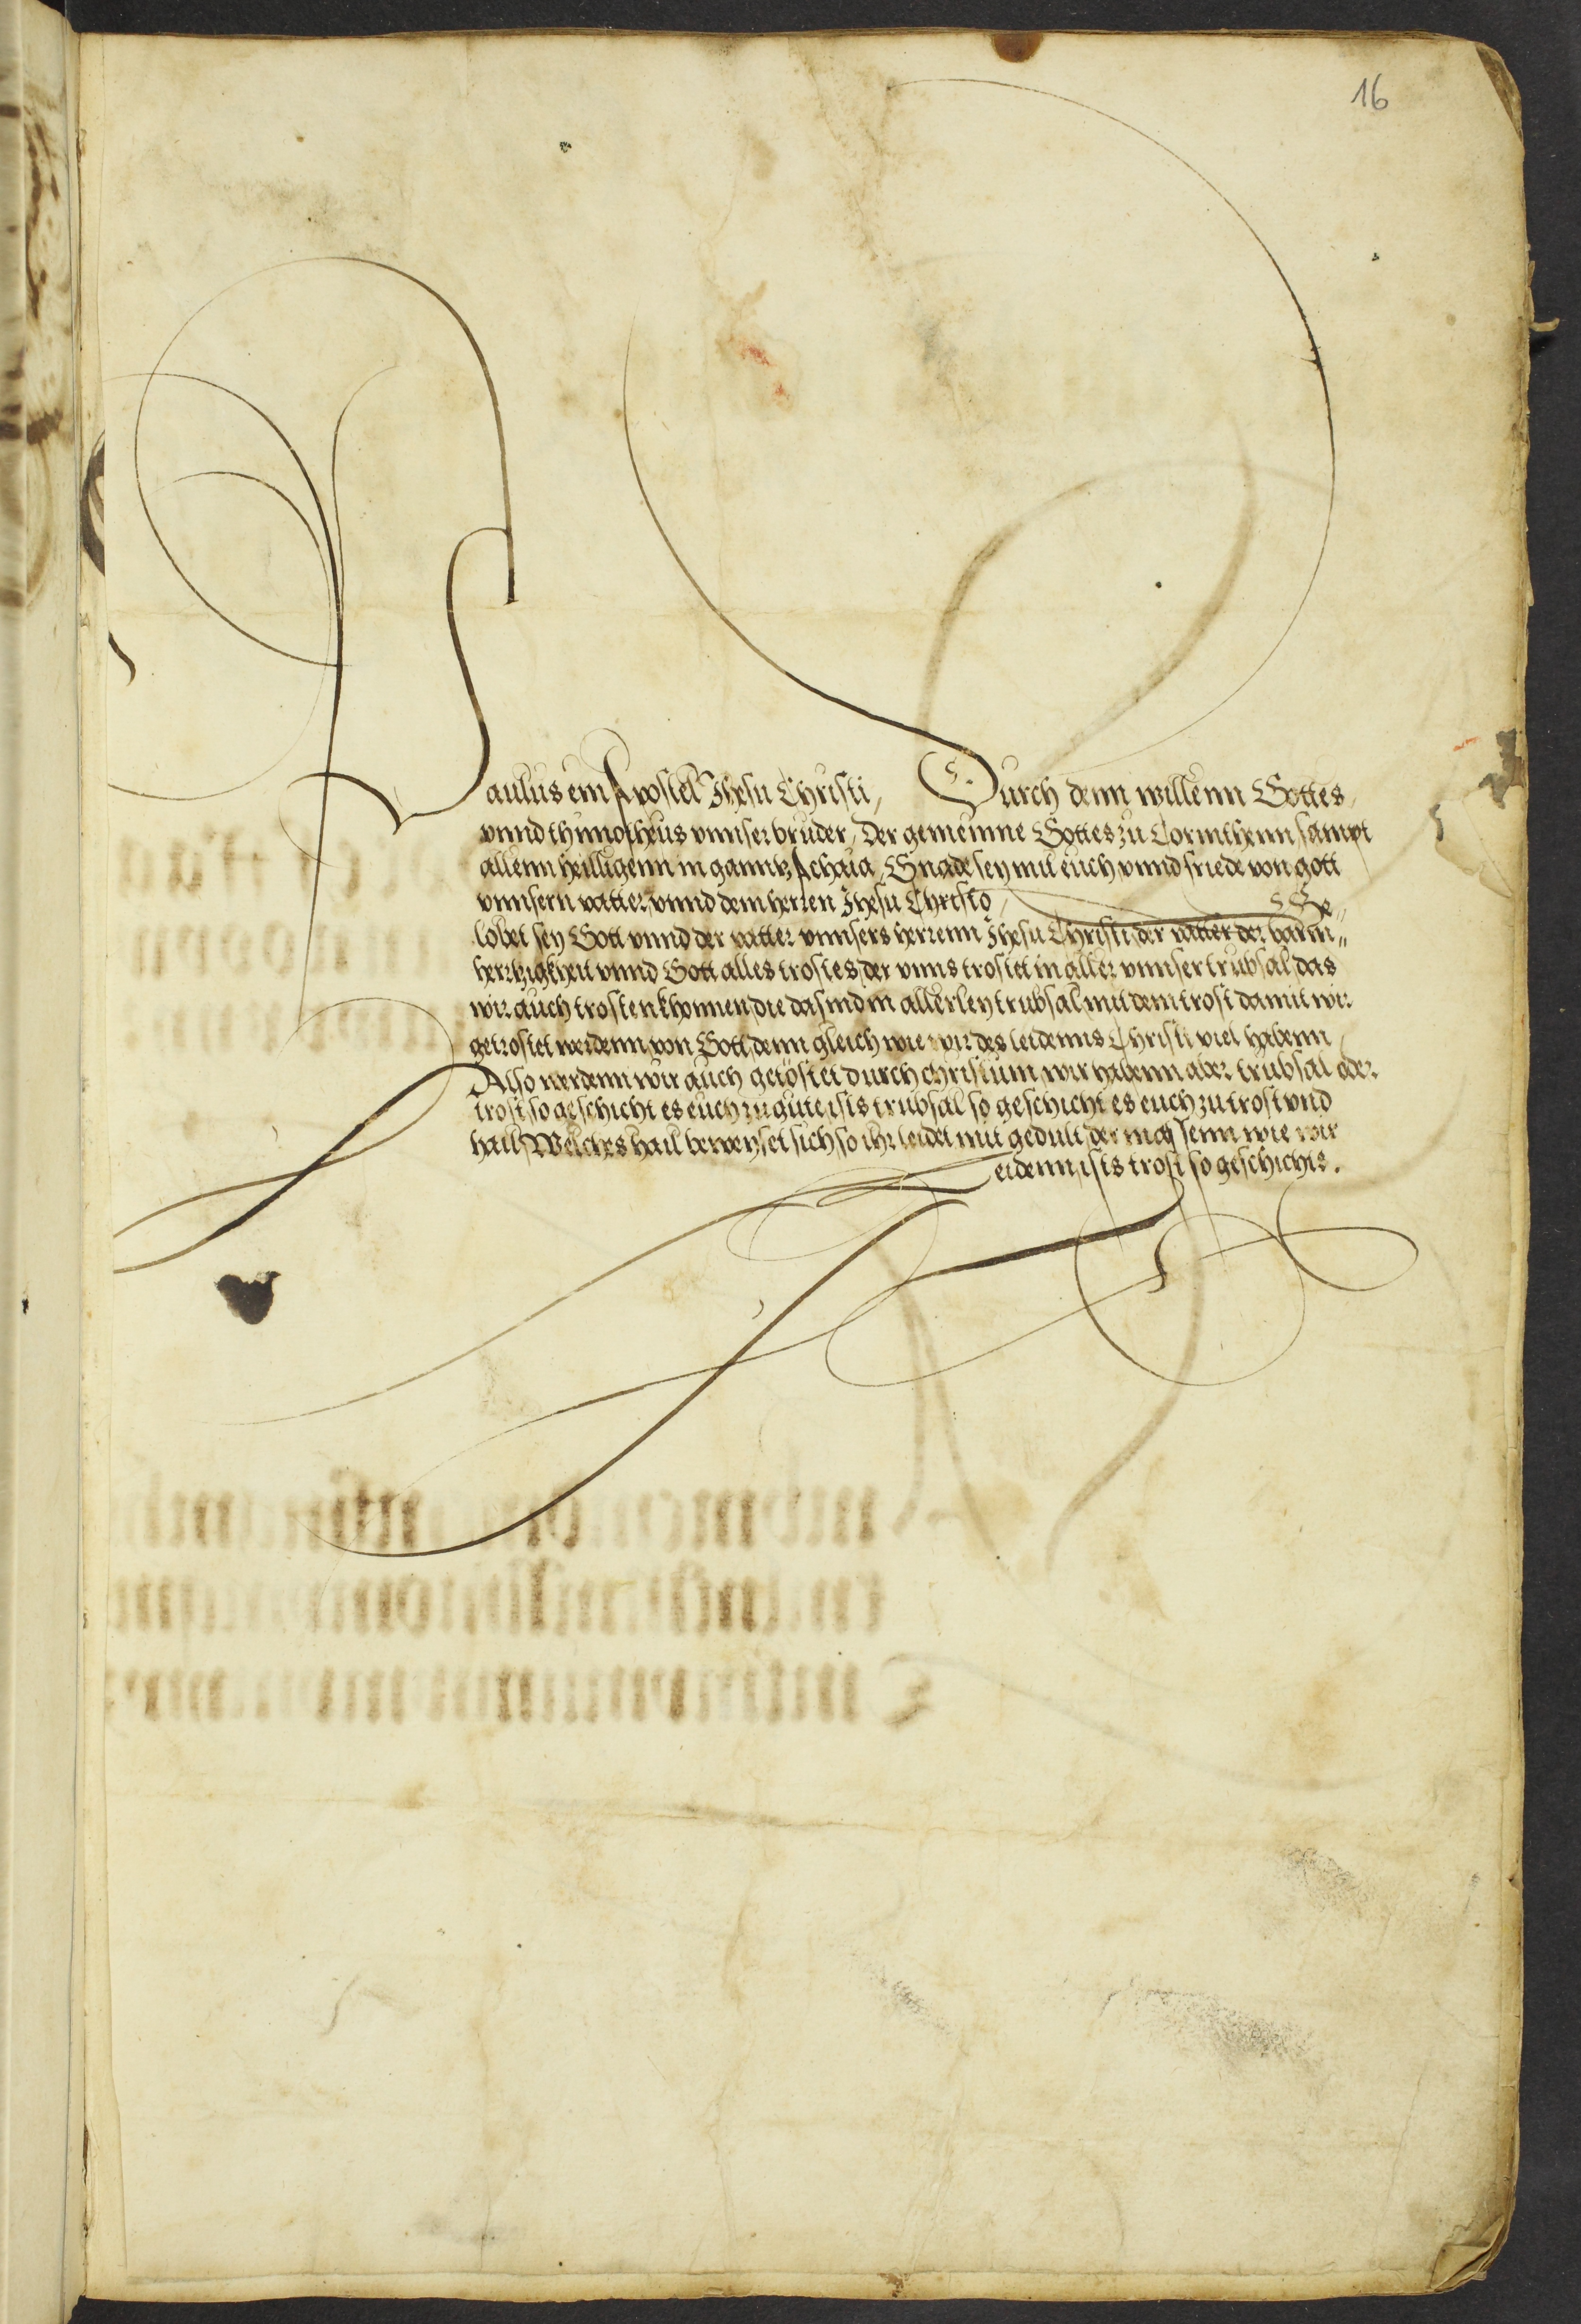 16
Paulus ein Apostel Jhesu Christi, Durch denn willenn Gottes,
vnnd thimotheus vnnser bruder, Der gemeinne Gottes zu Corinthenn sampt
allenn heilligenn in ganntz Achaia, Gnade sey mit euch vnnd friede von gott
vnnsern vatter, vnnd dem herren Jhesu Christo, Ge„
lobet sey Gott vnnd der vatter vnnsers herrenn Jhesu Christi der vatter der barm„
hertzigkheit vnnd Gott alles trostes, der vnns trostet in aller vnnser trubsal, das
wir auch trosten khonnen, die da sind in allerley trubsal, mit dem trost damit wir
getrostet werdenn von Gott, denn gleich wie wir des leidenns Christi viel habenn,
Also werdenn wir auch getöstet durch christum, wir habenn aber trubsal oder
trost so geschicht es euch zu gute, ists trubsal so geschicht es euch zu trost vnd
hail, Welches hail beweyset sich so ihr leidet mit gedult, der massenn wie wir
leidenn, ists trost so geschichts.